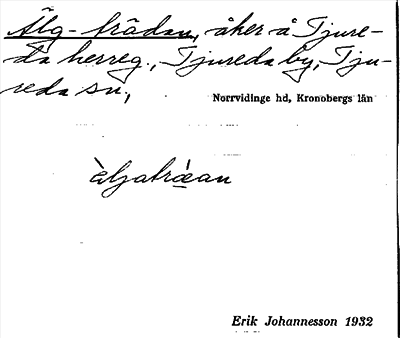 Älg-trädan, åker å Tjure-
da herreg., Tjureda by, Tju-
reda sn,
Norrvidinge hd, Kronobergs län
æ̀ljatrǽan
Erik Johannesson 1932